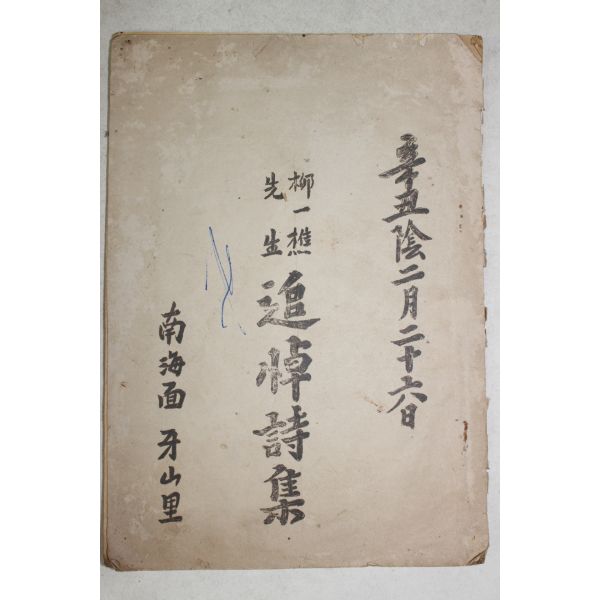 辛丑陰二月二十六日
柳一樵
先生
追悼詩集
南海面 牙山里